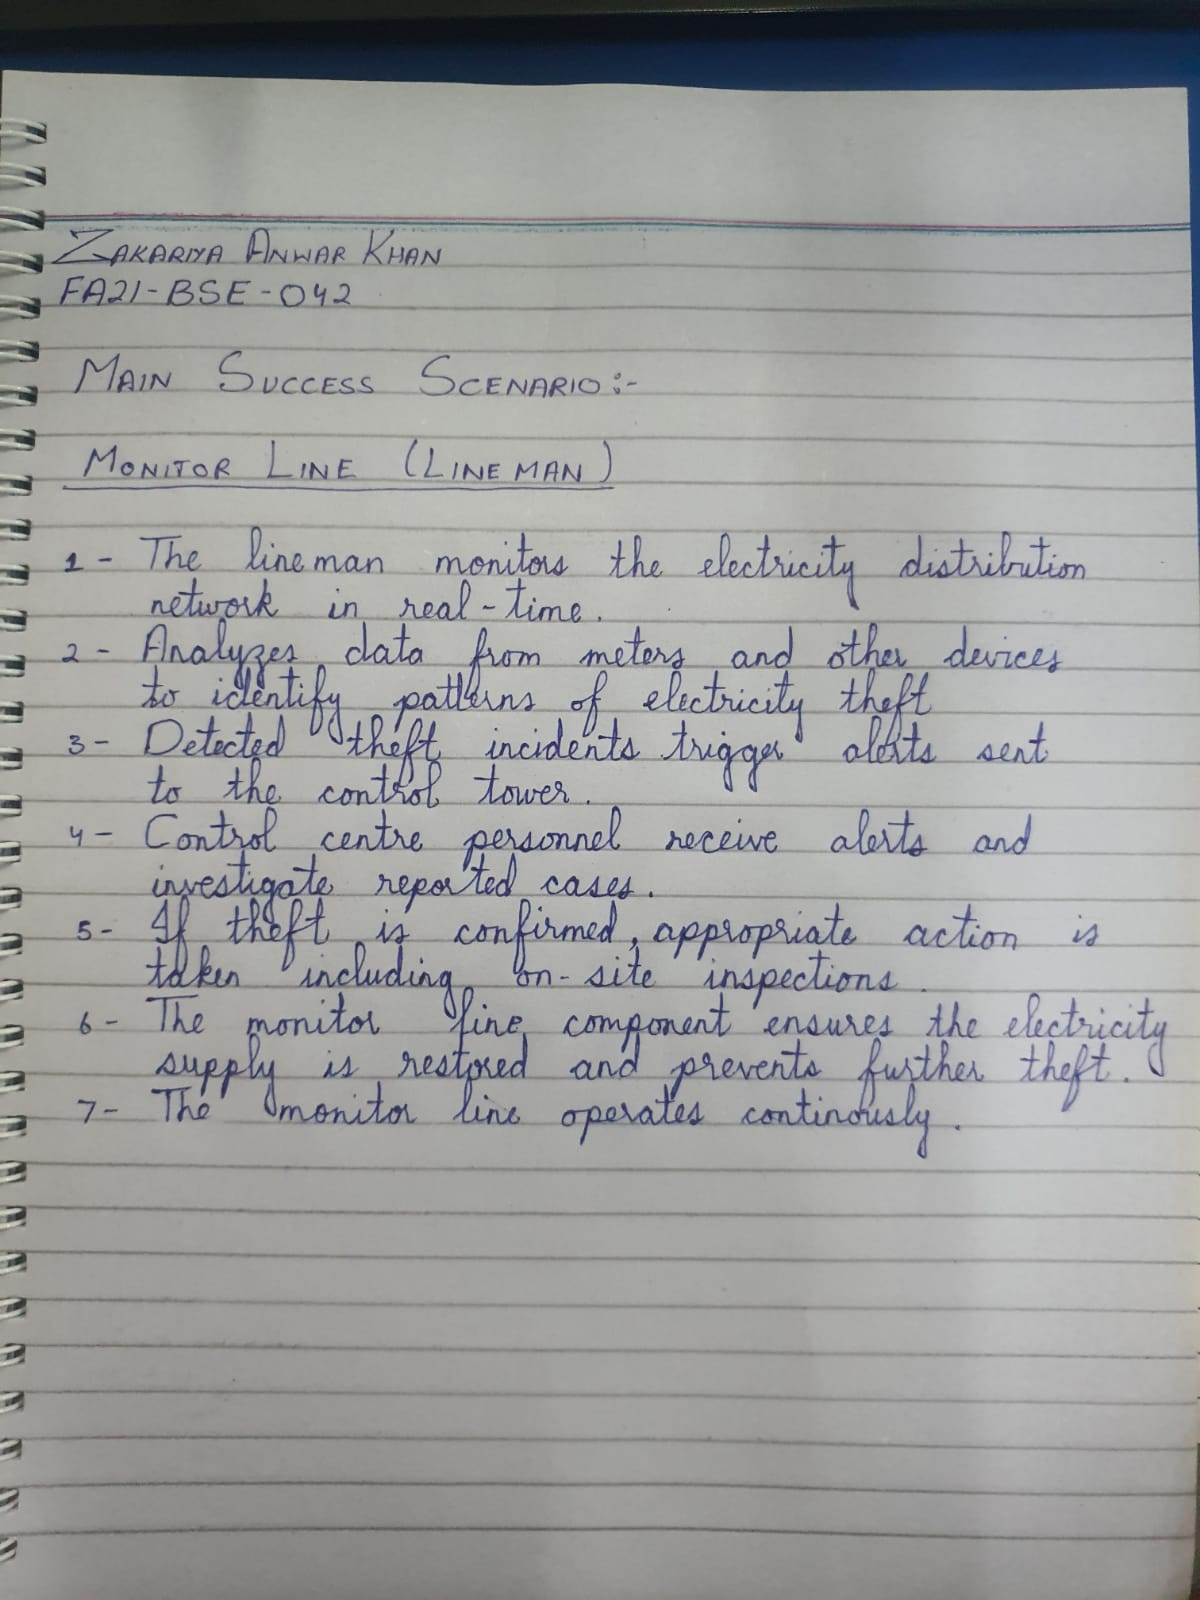 ZAKARIYA ANWAR KHAN
FA21-BSE-042
MAIN SUCCESS SCENARIO:-
MONITOR LINE (LINE MAN)
1 - The line man monitors the electricity distribution
network in real-time.
2 - Analyzes data from meters and other devices
to identify patterns of electricity theft
3 - Detected theft incidents trigger alerts sent
to the control tower.
4 - Control centre personnel receive alerts and
investigate reported cases.
5 - If theft is confirmed, appropriate action is
taken including on-site inspections.
6 - The monitor line component ensures the electricity
supply is restored and prevents further theft.
7 - The monitor line operates continously.